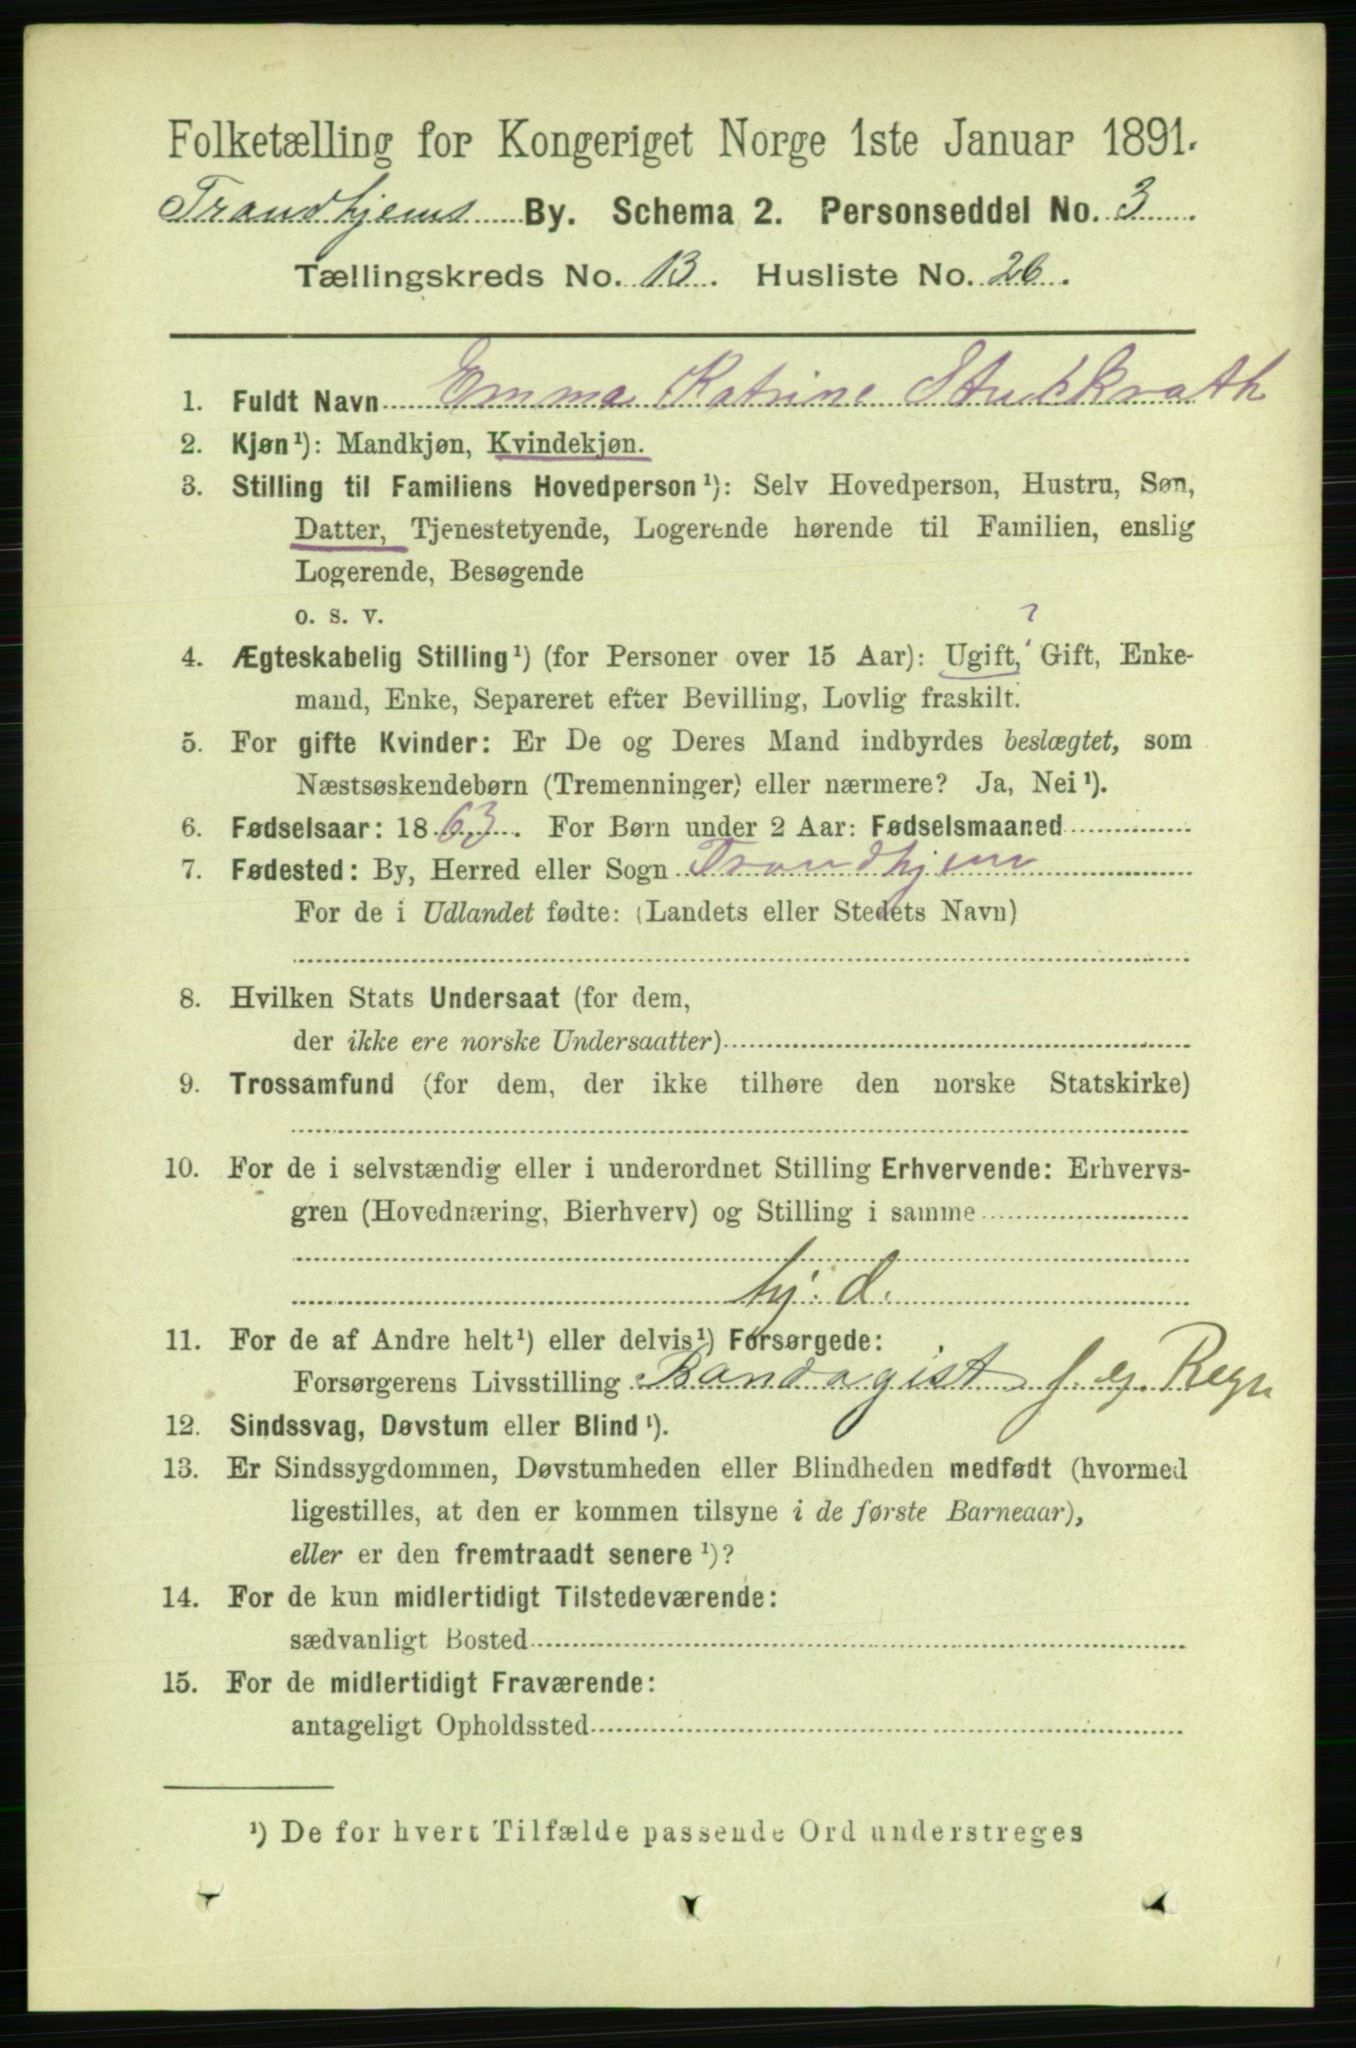 Folketælling for Kongeriget Norge 1ste Januar 1891.
Trondhjems By. Schema 2. Personseddel No. 3
Tællingskreds No. 13. Husliste No. 26.
1. Fuldt Navn Emma Katrine Stukkrath
2. Kjøn¹): Mandkjøn, Kvindekjøn.
3. Stilling til Familiens Hovedperson¹): Selv Hovedperson, Hustru, Søn,
Datter, Tjenestetyende, Logerende hørende til Familien, enslig
Logerende, Besøgende
o. s. v.
?
4. Ægteskabelig Stilling¹) (for Personer over 15 Aar): Ugift, Gift, Enke-
mand, Enke, Separeret efter Bevilling, Lovlig fraskilt.
5. For gifte Kvinder: Er De og Deres Mand indbyrdes beslægtet, som
Næstsøskendebørn (Tremenninger) eller nærmere? Ja, Nei¹).
6. Fødselsaar: 1863. For Børn under 2 Aar: Fødselsmaaned
7. Fødested: By, Herred eller Sogn Trondhjem
For de i Udlandet fødte: (Landets eller Stedets Navn)
8. Hvilken Stats Undersaat (for dem,
der ikke ere norske Undersaatter)
9. Trossamfund (for dem, der ikke tilhøre den norske Statskirke)
10. For de i selvstændig eller i underordnet Stilling Erhvervende: Erhvervs-
gren (Hovednæring, Bierhverv) og Stilling i samme
hj. d.
11. For de af Andre helt¹) eller delvis¹) Forsørgede:
Forsørgerens Livsstilling Bandagist f. eg. Regn
12. Sindssvag, Døvstum eller Blind¹).
13. Er Sindssygdommen, Døvstumheden eller Blindheden medfødt (hvormed
ligestilles, at den er kommen tilsyne i de første Barneaar),
eller er den fremtraadt senere¹)?
14. For de kun midlertidigt Tilstedeværende:
sædvanligt Bosted
15. For de midlertidigt Fraværende:
antageligt Opholdssted
¹) De for hvert Tilfælde passende Ord understreges